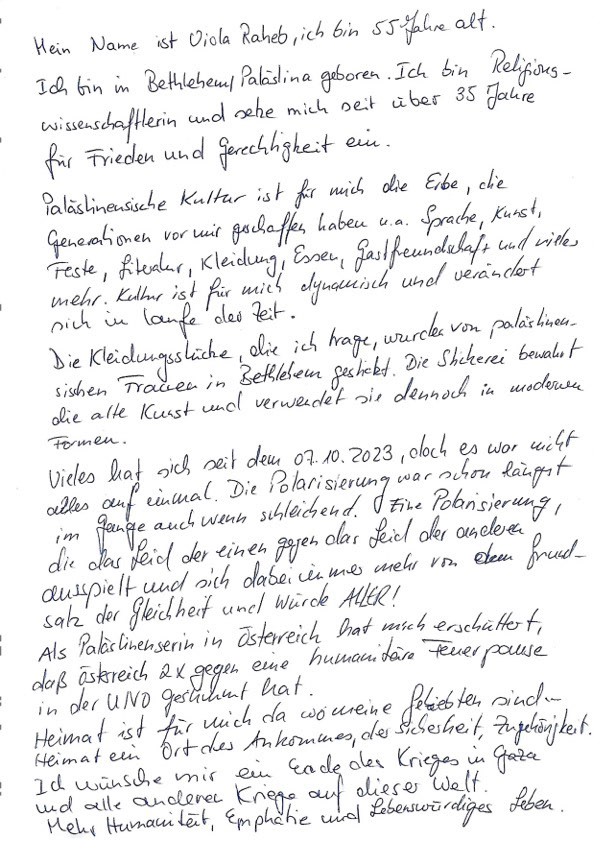 Mein Name ist Viola Raheb, ich bin 55 Jahre alt.
Ich bin in Bethlehem/Palästina geboren. Ich bin Religions-
wissenschaftlerin und setze mich seit über 35 Jahre
für Frieden und Gerechtigkeit ein.
Palästinensische Kultur ist für mich die Erbe, die
Generationen vor mir geschaffen haben u.a. Sprache, Kunst,
Feste, Literatur, Kleidung, Essen, Gastfreundschaft und vieles
mehr. Kultur ist für mich dynamisch und verändert
sich in laufe der Zeit.
Die Kleidungsstücke, die ich trage, wurden von palästinen-
sischen Frauen in Bethlehem gestickt. Die Stickerei bewahrt
die alte Kunst und verwendet sie dennoch in modernen
Formen.
Vieles hat sich seit dem 07.10.2023, doch es war nicht
alles auf einmal. Die Polarisierung war schon längst
im Gange auch wenn schleichend. Eine Polarisierung,
die das Leid der einen gegen das Leid der anderen
ausspielt und sich dabei immer mehr von dem Grund-
satz der Gleichheit und Würde ALLER!
Als Palästinenserin in Österreich hat mich erschüttert,
daß Österreich 2x gegen eine humanitäre Feuerpause
in der UNO gestimmt hat.
Heimat ist für mich da wo meine Geliebten sind-
Heimat ein Ort des Ankommes, der Sicherheit, Zugehörigkeit.
Ich wünsche mir ein Ende des Krieges in Gaza
und alle anderen Kriege auf dieser Welt.
Mehr Humanität, Emphatie und Lebenswürdiges Leben.